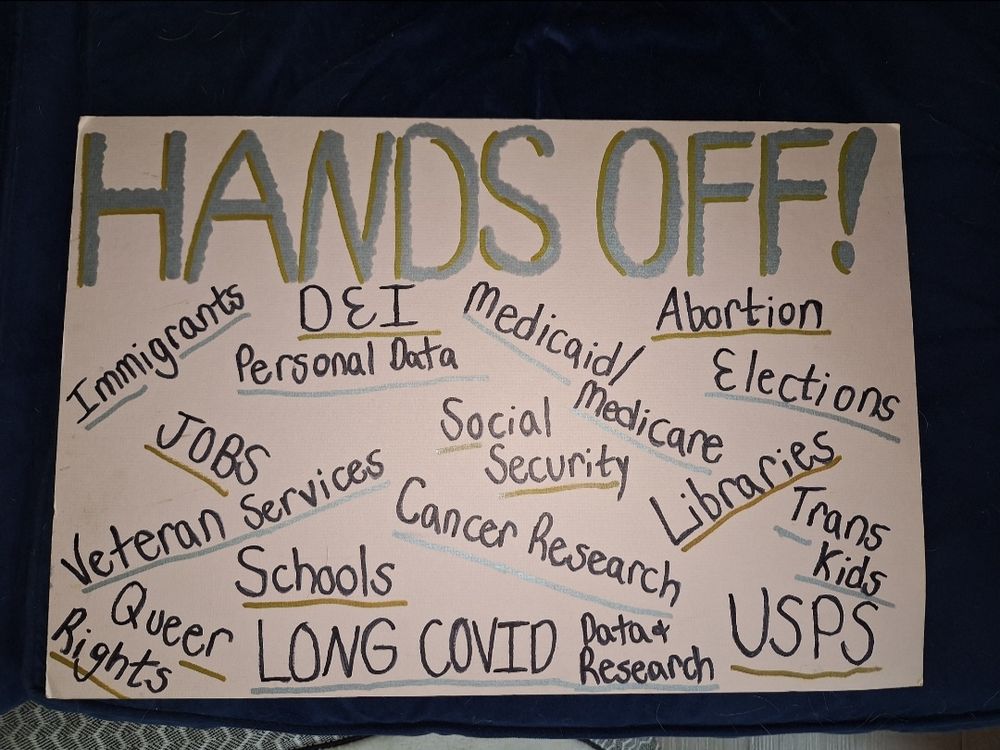 HANDS OFF!
Immigrants
D&I
Personal Data
Medicaid/
Medicare
Abortion
Elections
JOBS
Social
Security
Libraries
Veteran Services
Cancer Research
Trans
Kids
Schools
Queer
Rights
LONG COVID
Data &
Research
USPS